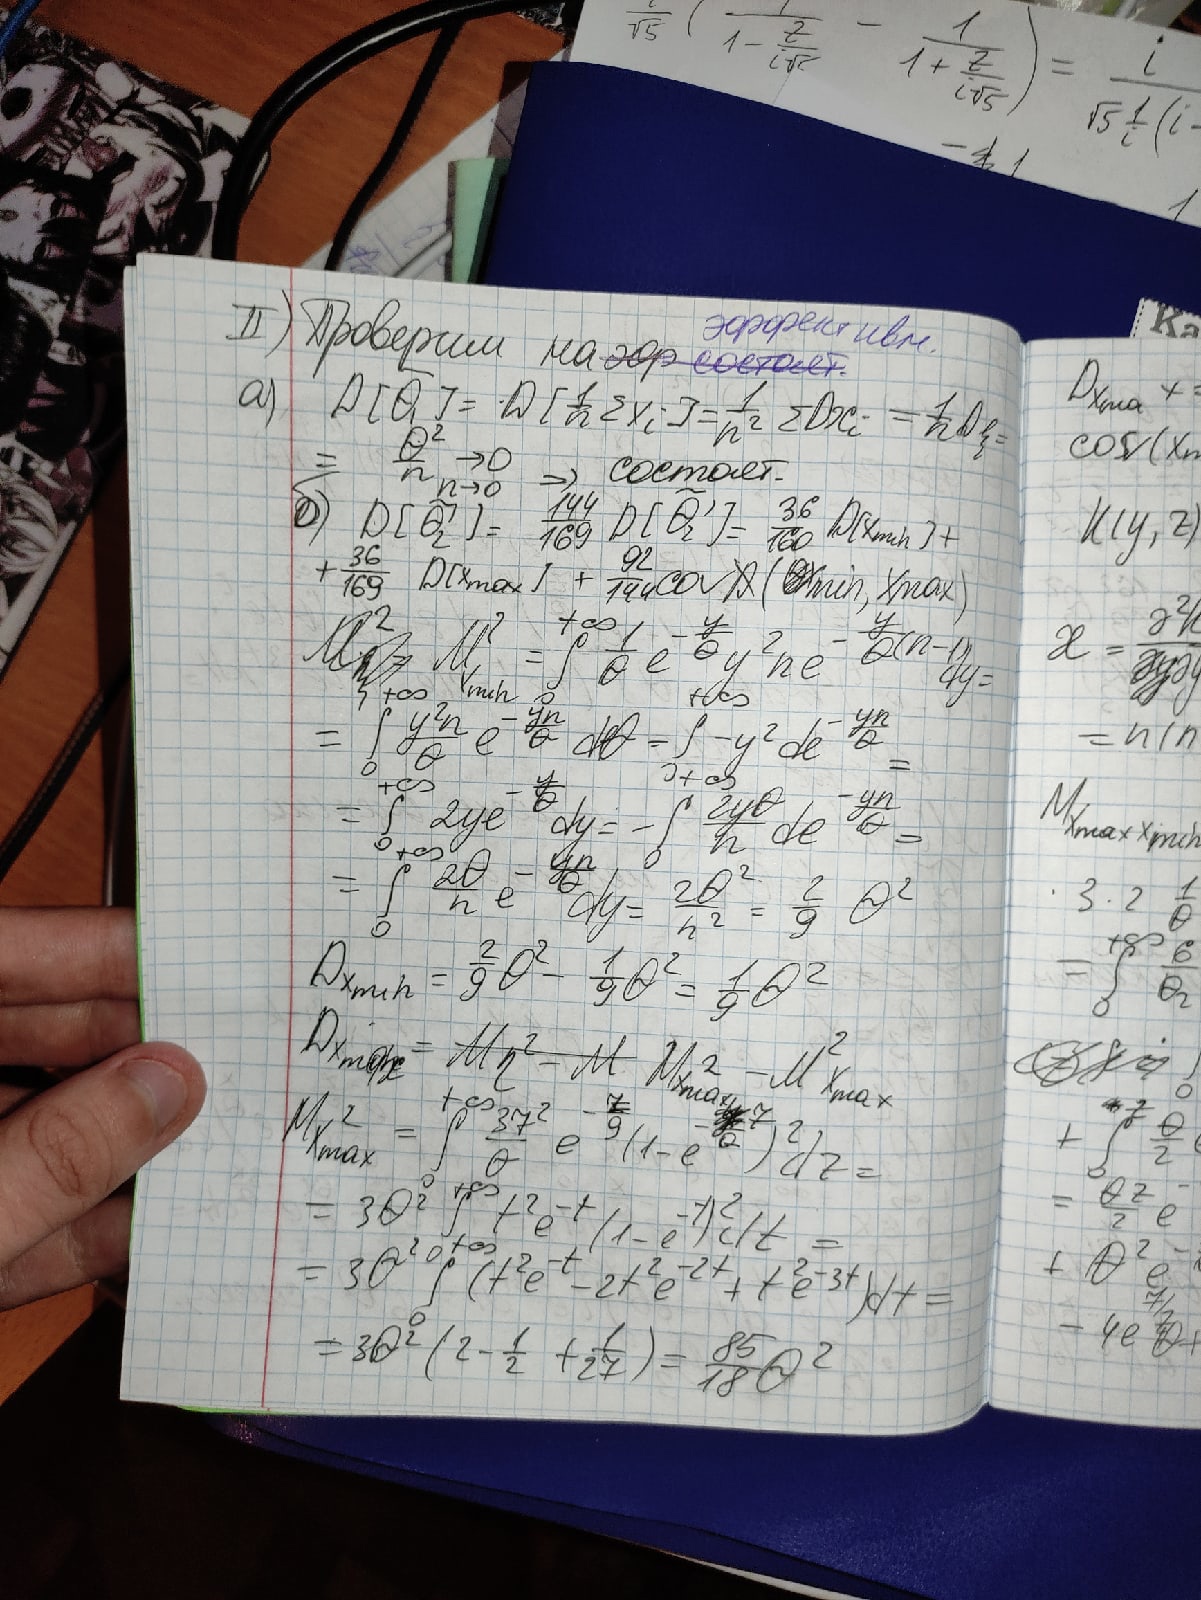 i/√5 ( 1/(1 - z/(i√5)) - 1/(1 + z/(i√5)) ) = i/(√5 1/i (i -
Ka
II) Проверим на эфр состоят. эффективн.
a) D[θ̃₁] = D[1/n Σxᵢ] = 1/n² ΣDxᵢ = 1/n Dξ =
= θ²/n → 0 n→0 ⇒ состоят.
б) D[θ̃₂'] = 144/169 D[θ̃₂'] = 36/160 D[xmin] +
+ 36/169 D[xmax] + 92/144 cov (xmin, xmax)
M²xmin = ∫₀^{+∞} 1/θ e^{-y/θ} y² n e^{-y/θ (n-1)} dy =
= ∫₀^{+∞} y²n/θ e^{-yn/θ} dθ = ∫₀^{+∞} -y² de^{-yn/θ} =
= ∫₀^{+∞} 2ye^{-y/θ} dy = -∫₀^{+∞} 2yθ/n de^{-yn/θ} =
= ∫₀^{+∞} 2θ/n e^{-yn/θ} dy = 2θ²/n² = 2/9 θ²
Dxmin = 2/9 θ² - 1/9 θ² = 1/9 θ²
Dxmax = Mη² - M Mxmax² - M²xmax
Mxmax² = ∫₀^{+∞} 3z²/θ e^{-z/θ} (1-e^{-z/θ})² dz =
= 3θ² ∫₀^{+∞} t²e^{-t} (1-e^{-t})² dt =
= 3θ² ∫₀^{+∞} (t²e^{-t} - 2t²e^{-2t} + t²e^{-3t}) dt =
= 3θ² (2 - 1/2 + 1/27) = 85/18 θ²
Dxmax + =
cov(xm
K(y, z)
= n(n
Mxmax xmin
· 3 · 2 1/θ
= ∫₀^{+∞} 6/θ2
+ ∫₀^z θ/2
= θz/2 e⁻
+ θ² e⁻